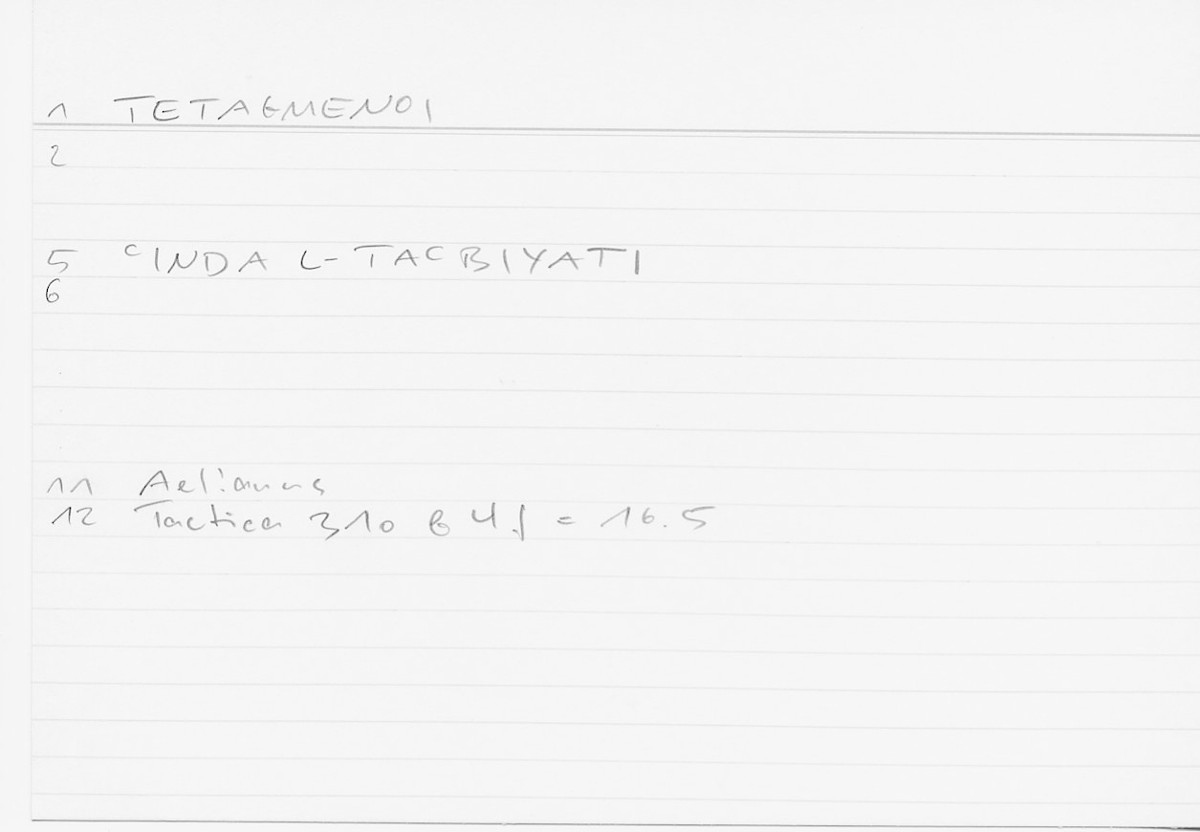 1 TETAGMENOI
2
5 ᶜINDA L-TAᶜBIYATI
6
11 Aelianus
12 Tactica 310 b 4 f = 16.5